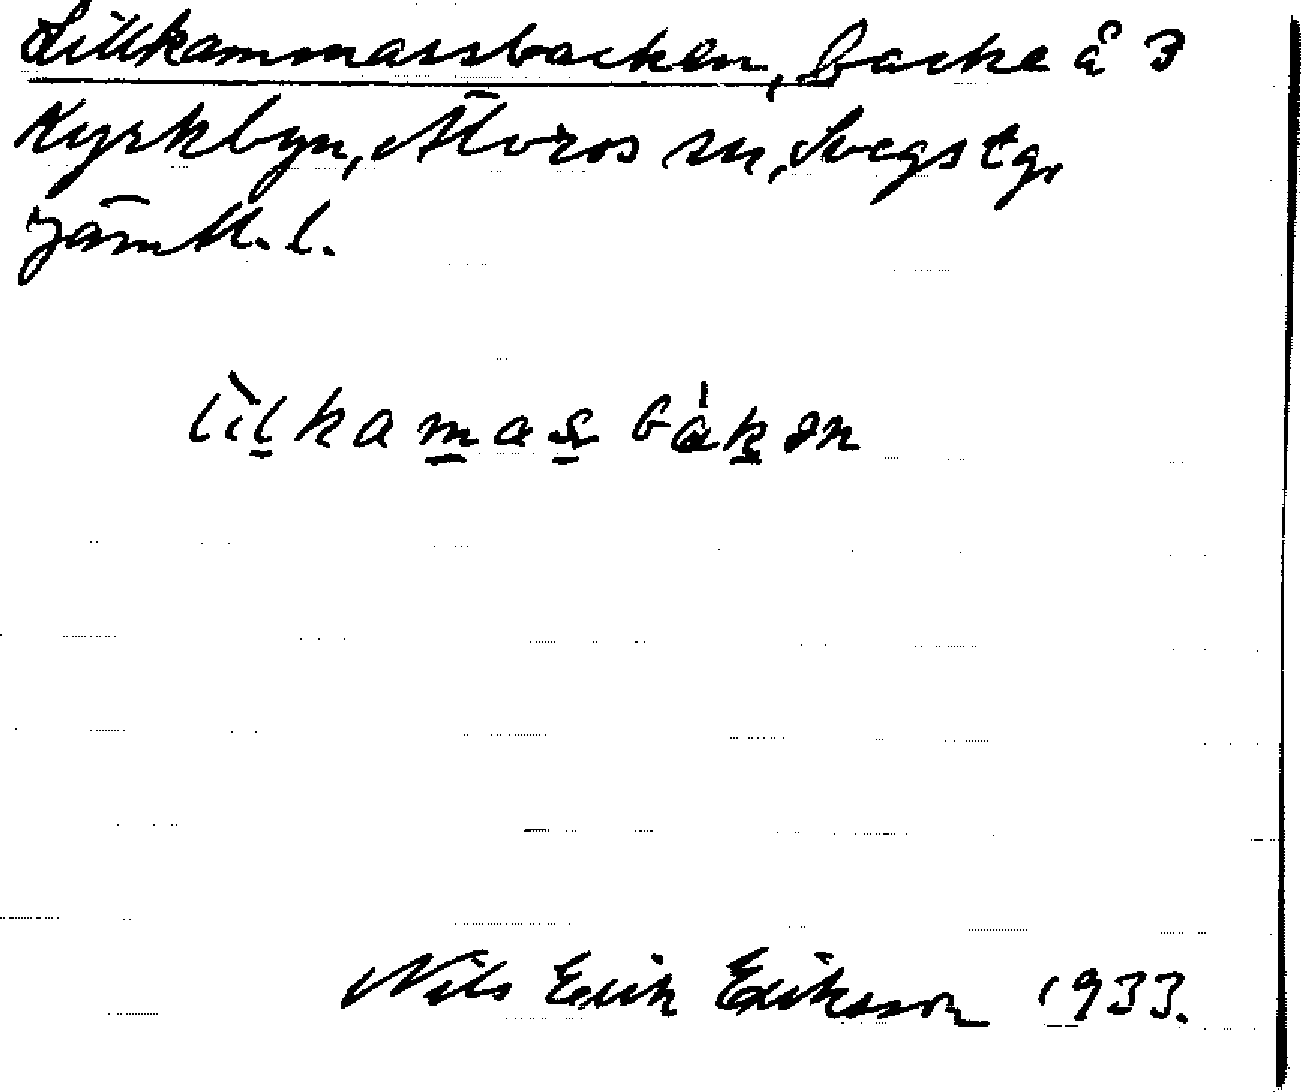 Lillkammarsbacken, backe å 3
Kyrkbyn, Älvros sn, Svegs tg,
Jämtl. l.
lìlkamasbákən
Nils Erik Eriksson 1933.